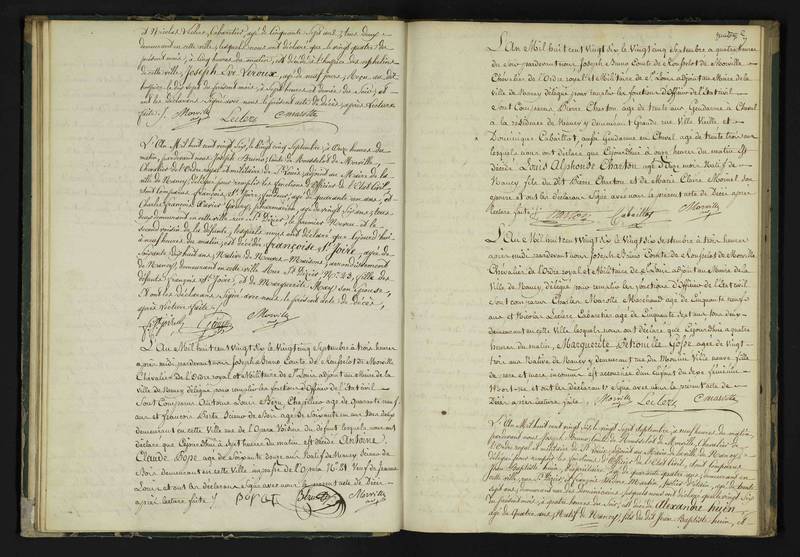 et Nicolas Leclerc, Cabaretier, agé de Cinquante Sept ans, tous deux
demeurant en cette ville, lesquels nous ont déclaré que le vingt quatre du
présent mois, à Cinq heures du matin, est décédé à l'hospice des orphelins
de cette ville, Joseph Eve Veroux, agé de neuf jours,
hospice le dix Sept du présent mois, à Sept heures et demie du Soir; et
ont les déclarans Signé avec nous le présent acte de décès, après lecture
faite. Morville Leclerc Cmarotte
L'An Mil huit cent vingt Six, le vingt cinq Septembre, à Onze heures du
matin, pardevant nous Joseph Bruno, Comte de Rousselot de Morville,
Chevalier de l'Ordre royal et militaire de St Louis, adjoint au Maire de la
ville de Nancy, délégué pour remplir les fonctions d'Officier de l'Etat Civil,
Sont Comparus François, St Joire, agé de quarante un ans, et
Charles François agé de vingt Six ans, tous
deux demeurant en cette ville, le premier Neveu et le
Second voisin de la défunte, lesquels nous ont déclaré que Cejourd'hui
à neuf heures du matin, est décédée Françoise St Joire, agée de
Soixante dix huit ans, Native de
de Nancy, demeurant en cette ville Rue St Dizier No 29, fille des
défunts François St Joire, et de Marguerite Son Epouse,
Et ont les déclarans Signé avec nous le présent acte de Décès,
après lecture faite.
Morville
L'An Mil huit cent vingt Six le Vingt cinq Septembre à trois heures
après midi, pardevant nous Joseph Bruno Comte de Rousselot de Morville
Chevalier de l'Ordre royal et Militaire de St Louis adjoint au Maire de la
Ville de Nancy délégué pour remplir les fonctions d'Officier de l'Etat civil
Sont Comparus Antoine Louis Chapellier agé de Quarante neuf
ans et François Scieur de Bois agé de Soixante un ans tous deux
demeurant en cette Ville rue de l'Opera Voisins du défunt lesquels nous ont
déclaré que Cejourd'hui à Sept heures du matin est décédé Antoine
Claude Pope agé de Soixante douze ans Natif de Nancy Scieur de
Bois demeurant en cette Ville de l'Opera No 21 Veuf de Jeanne
Louis et ont les déclarans Signé avec nous le présent acte de Décès
après lecture faite. Morville
L'An Mil huit cent Vingt Six le Vingt cinq Septembre à quatre heures
du Soir pardevant nous Joseph Bruno Comte de Rousselot de Morville
Chevalier de l'Ordre royal et Militaire de St Louis adjoint au Maire de la
Ville de Nancy délégué pour remplir les fonctions d'Officier de l'Etat civil
Sont Comparus Pierre Charton agé de trente ans Gendarme à Cheval
à la résidence de Nancy y demeurant Grande rue Ville Vieille et
Dominique Cabaillot, aussi Gendarme à Cheval agé de trente trois ans
lesquels nous ont déclaré que Cejourd'hui à onze heures du matin Est
décédé Louis Alphonse Charton agé de onze mois Natif de
Nancy fils du dit Pierre Charton et de Marie Claire Moinet son
épouse et ont les déclarans Signé avec nous le présent acte de Décès après
lecture faite. Charton Cabaillot Morville
L'An Mil huit cent Vingt Six le Vingt Six Septembre à trois heures
après midi pardevant nous Joseph Bruno Comte de Rousselot de Morville
Chevalier de l'Ordre royal et Militaire de St Louis adjoint au Maire de la
Ville de Nancy, délégué pour remplir les fonctions d'Officier de l'Etat civil
Sont comparus Charles Marotte Marchand agé de Cinquante neuf
ans et Nicolas Leclerc Cabaretier agé de Cinquante Sept ans tous deux
demeurant en cette Ville lesquels nous ont déclaré que Cejourd'hui à quatre
heures du matin, Marguerite Petronille Gosse agée de Vingt
trois ans Native de Nancy y demeurant rue du Moulin Ville neuve fille
de père et mère inconnus est accouchée d'un enfant du Sexe féminin
Mort-né et ont les déclarans Signé avec nous le présent acte de
Décès après lecture faite. Morville Leclerc Cmarotte
L'An Mil huit cent vingt Six, le vingt Sept Septembre, à neuf heures du matin,
pardevant nous Joseph Bruno, Comte de Rousselot de Morville, Chevalier de
l'Ordre royal et militaire de St Louis, adjoint au Maire de la ville de Nancy,
délégué pour remplir les fonctions d'Officier de l'Etat Civil, Sont comparus
Jean Baptiste huin, agé de quarante quatre ans, demeurant en
cette ville, rue St Dizier, et François
ans, demeurant
du présent mois, à quatre heures du Soir, est décédé Alexandre huin,
agé de Quatre ans, Natif de Nancy, fils du dit Jean Baptiste huin, et